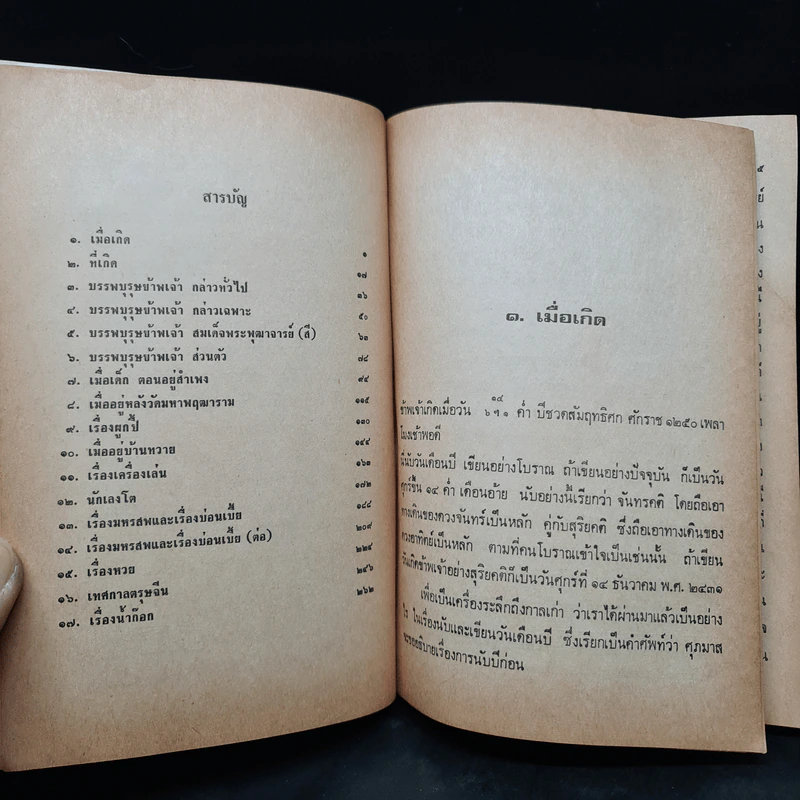 สารบัญ
๑. เมื่อเกิด ๑
๒. ที่เกิด ๑๗
๓. บรรพบุรุษข้าพเจ้า กล่าวทั่วไป ๓๖
๔. บรรพบุรุษข้าพเจ้า กล่าวเฉพาะ ๕๐
๕. บรรพบุรุษข้าพเจ้า สมเด็จพระพุฒาจารย์ (สี) ๖๓
๖. บรรพบุรุษข้าพเจ้า ส่วนตัว ๗๘
๗. เมื่อเด็ก ตอนอยู่สำเพง ๙๔
๘. เมื่ออยู่หลังวัดมหาพฤฒาราม ๑๑๕
๙. เรื่องผูกปี้ ๑๓๐
๑๐. เมื่ออยู่บ้านทวาย ๑๔๔
๑๑. เรื่องเครื่องเล่น ๑๖๓
๑๒. นักเลงโต ๑๗๒
๑๓. เรื่องมหรสพและเรื่องบ่อนเบี้ย ๑๘๘
๑๔. เรื่องมหรสพและเรื่องบ่อนเบี้ย (ต่อ) ๒๐๙
๑๕. เรื่องหวย ๒๒๕
๑๖. เทศกาลตรุษจีน ๒๔๖
๑๗. เรื่องน้ำก๊อก ๒๖๒
๑. เมื่อเกิด
ข้าพเจ้าเกิดเมื่อวัน ๖ ฯ ๑๔ ๑ ค่ำ ปีชวดสัมฤทธิศก ศักราช ๑๒๕๐ เพลา
โมงเช้าพอดี
นี่นับวันเดือนปี เขียนอย่างโบราณ ถ้าเขียนอย่างปัจจุบัน ก็เป็นวัน
ศุกร์ขึ้น ๑๔ ค่ำ เดือนอ้าย นับอย่างนี้เรียกว่า จันทรคติ โดยถือเอา
ทางเดินของดวงจันทร์เป็นหลัก คู่กับสุริยคติ ซึ่งถือเอาทางเดินของ
ดวงอาทิตย์เป็นหลัก ตามที่คนโบราณเข้าใจเป็นเช่นนั้น ถ้าเขียน
วันเกิดข้าพเจ้าอย่างสุริยคติก็เป็นวันศุกร์ที่ ๑๔ ธันวาคม พ.ศ. ๒๔๓๑
เพื่อเป็นเครื่องระลึกถึงกาลเก่า ว่าเราได้ผ่านมาแล้วเป็นอย่าง
ไร ในเรื่องนับและเขียนวันเดือนปี ซึ่งเรียกเป็นคำศัพท์ว่า ศุภมาส
จะขออธิบายเรื่องการนับปีก่อน